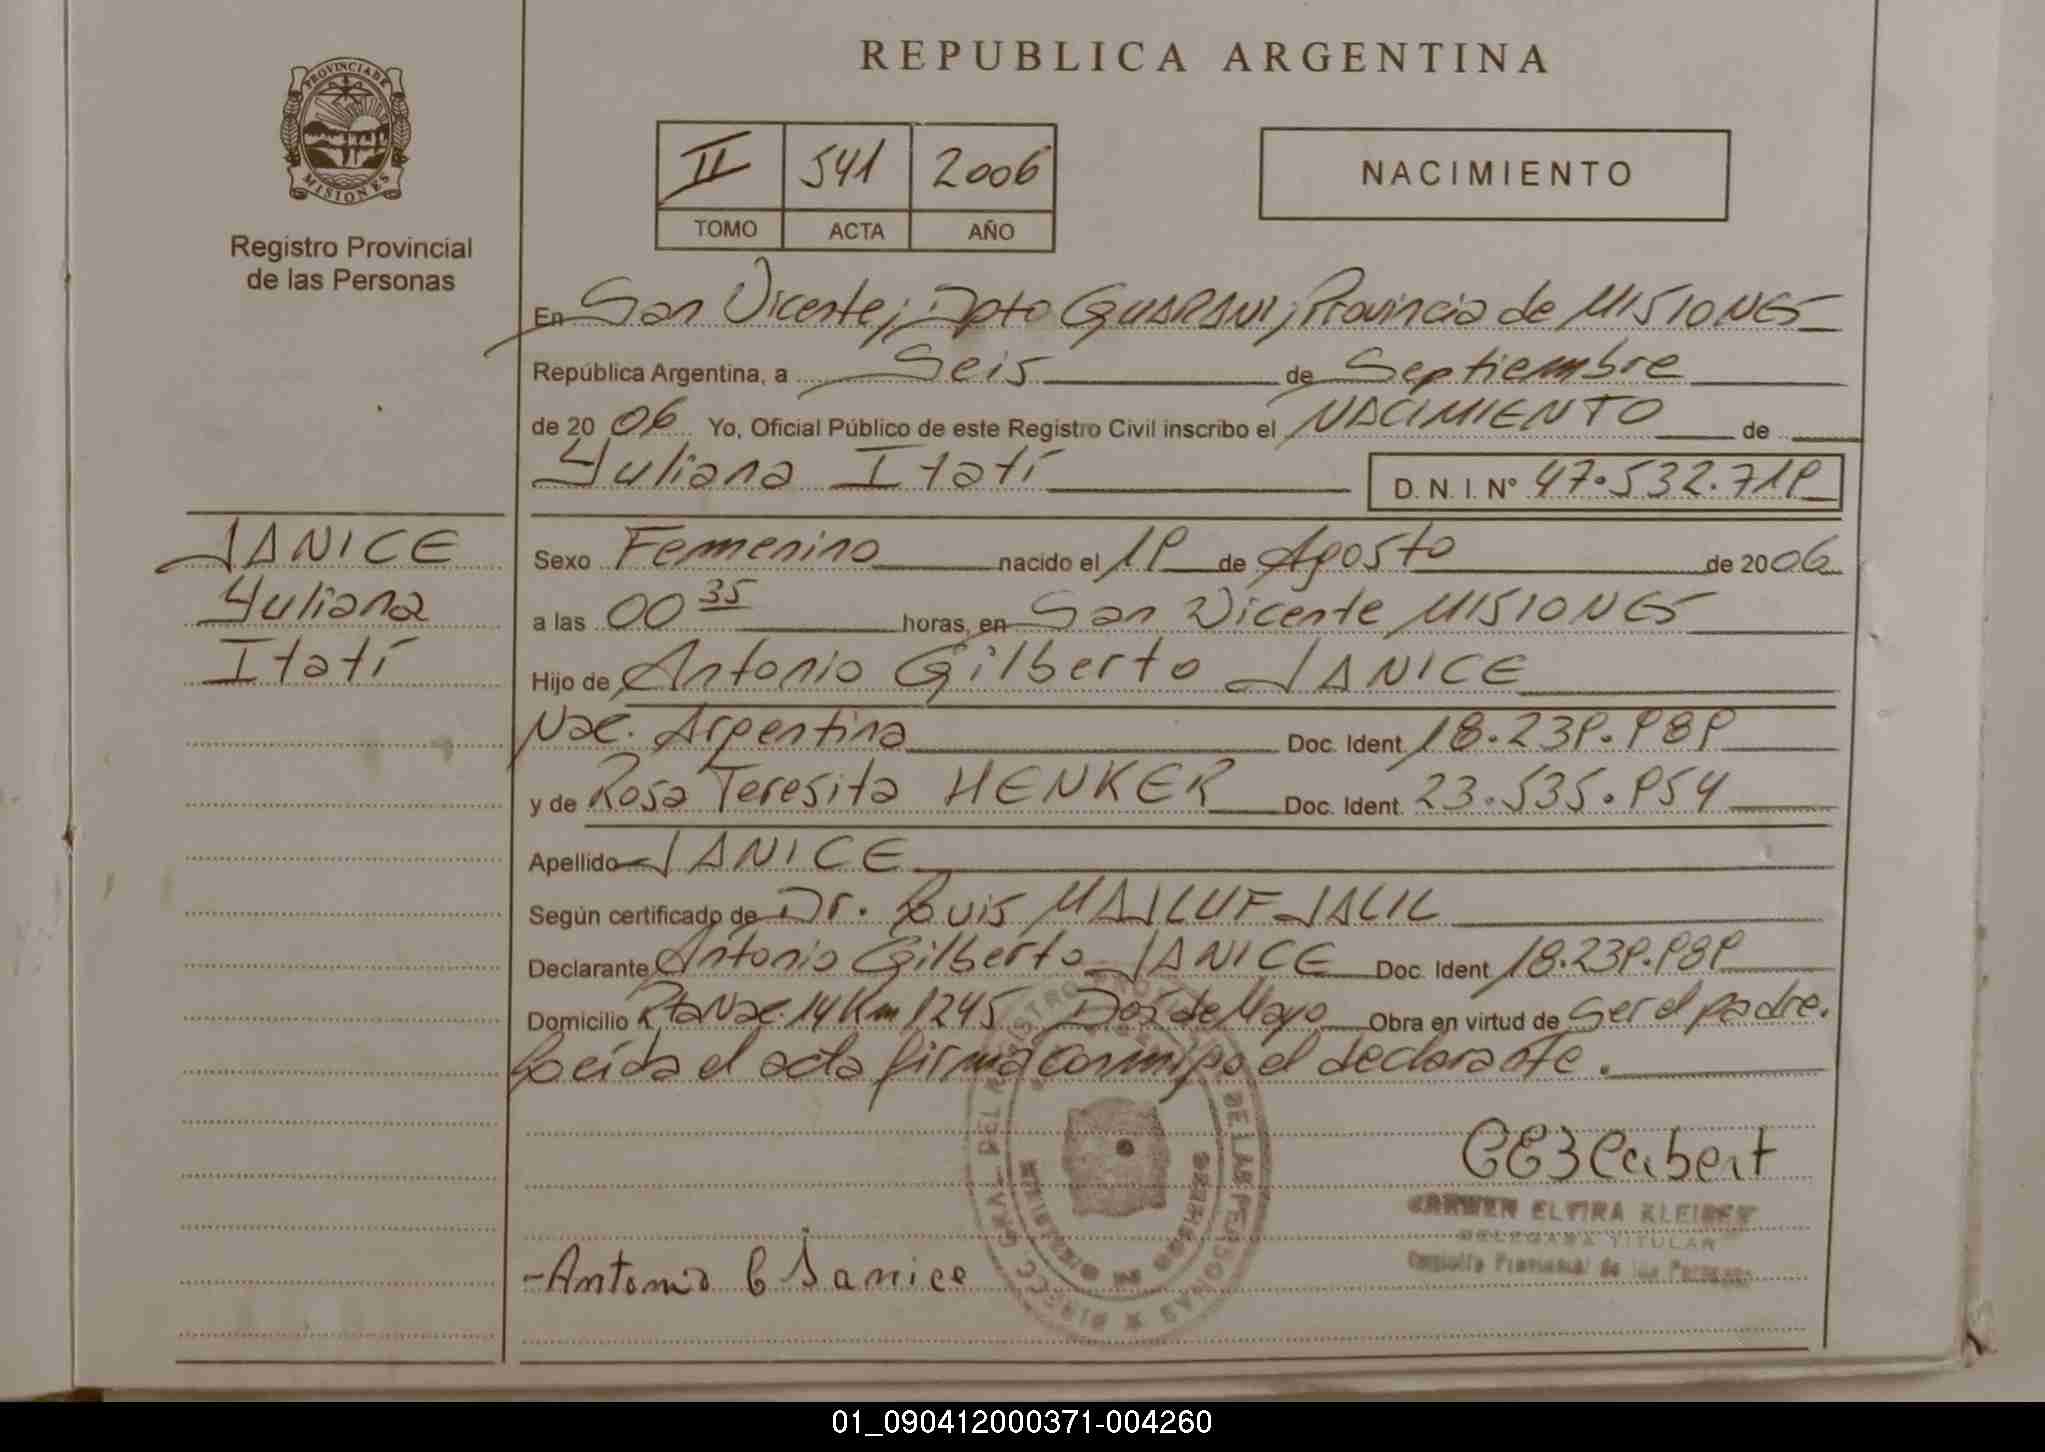 REPUBLICA ARGENTINA
PROVINCIA DE MISIONES
Registro Provincial
de las Personas
II 541 2006
TOMO ACTA AÑO
NACIMIENTO
En San Vicente, Dpto GUARANI, Provincia de MISIONES
República Argentina, a Seis de Septiembre
de 2006 Yo, Oficial Público de este Registro Civil inscribo el NACIMIENTO de
Yuliana Itatí D. N. I. N° 47.532.719
JANICE
Yuliana
Itatí
Sexo Femenino nacido el 19 de Agosto de 2006
a las 00 35 horas, en San Vicente MISIONES
Hijo de Antonio Gilberto JANICE
Nac. Argentina Doc. Ident. 18.239.989
y de Rosa Teresita HENKER Doc. Ident. 23.535.954
Apellido JANICE
Según certificado de Dr. Luis MAJLUF JALIL
Declarante Antonio Gilberto JANICE Doc. Ident 18.239.989
Domicilio Rta Nac. 14 Km 1245 Dos de Mayo Obra en virtud de ser el padre.
Leída el acta firma conmigo el declarante.
CARMEN ELVIRA KLEIBER
DELEGADA TITULAR
Registro Provincial de las Personas
-Antonio G Janice
DIRECC. GRAL. DEL REGISTRO PROV. DE LAS PERSONAS
01_090412000371-004260